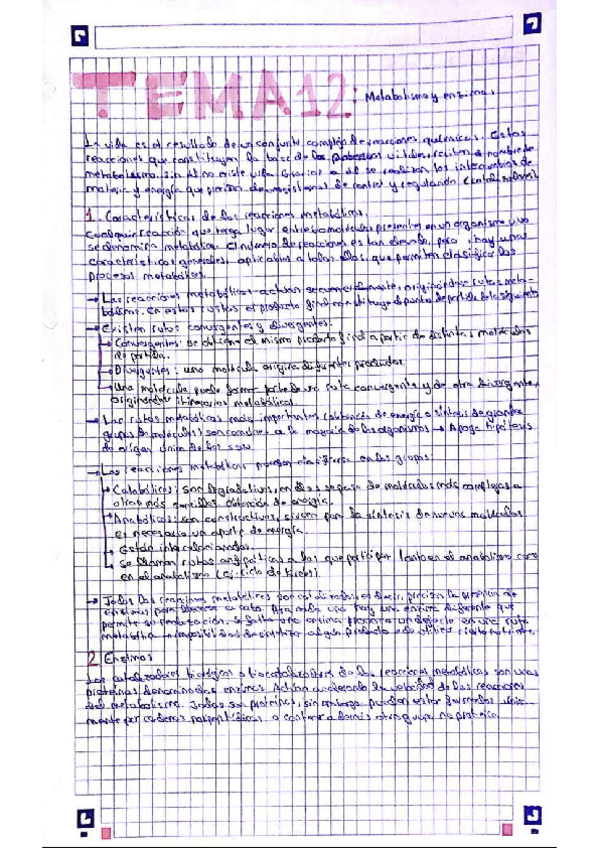 TEMA 12: Metabolismo y enzimas
La vida es el resultado de un conjunto complejo de reacciones químicas. Estas
reacciones que constituyen la base de los procesos vitales, reciben el nombre de
metabolismo, sin él no existe vida. Gracias a él se realizan los intercambios de
materia y energía que precisan de sistemas de control y regulación
1. Características de las reacciones metabólicas.
Cualquier reacción que tenga lugar entre biomoléculas presentes en un organismo vivo
se denomina metabólica. El número de reacciones es tan elevado, pero hay unas
características generales, aplicables a todas ellas, que permiten clasificar los
procesos metabólicos.
→ Las reacciones metabólicas actúan secuencialmente, originándose rutas meta-
bólicas. En estas rutas el producto final constituye el punto de partida de la siguiente
→ Existen rutas convergentes y divergentes.
→ Convergentes: se obtiene el mismo producto final a partir de distintas moléculas
de partida.
→ Divergentes: una molécula origina diferentes productos
→ Una molécula puede formar parte de una ruta convergente y de otra divergente,
originándose itinerarios metabólicos.
→ Las rutas metabólicas más importantes (obtención de energía o síntesis de grandes
grupos de moléculas) son comunes a la mayoría de los organismos → Apoya hipótesis
de origen único de los seres
→ Las reacciones metabólicas pueden clasificarse en dos grupos:
→ Catabólicas: son degradativas, en ellas se pasa de moléculas más complejas a
otras más sencillas. Obtención de energía.
→ Anabólicas: son constructivas, sirven para la síntesis de nuevas moléculas.
es necesario un aporte de energía.
→ Están interrelacionadas.
→ Se llaman rutas anfibólicas a las que participan tanto en el anabolismo como
en el catabolismo (ej: ciclo de Krebs).
→ Todas las reacciones metabólicas son catalizadas, es decir, precisan la presencia de
enzimas para llevarse a cabo. Para cada una hay una enzima diferente que
permite su realización. Si falta una enzima
metabólica imposibilitando sintetizar algún producto o de utilizar cierto nutriente.
2. Enzimas
Los catalizadores biológicos o biocatalizadores de las reacciones metabólicas son unas
proteínas denominadas enzimas. Actúan acelerando la velocidad de las reacciones
del metabolismo. Todas son proteínas, sin embargo pueden estar formadas única-
mente por cadenas polipeptídicas o contener además otro grupo no proteico.